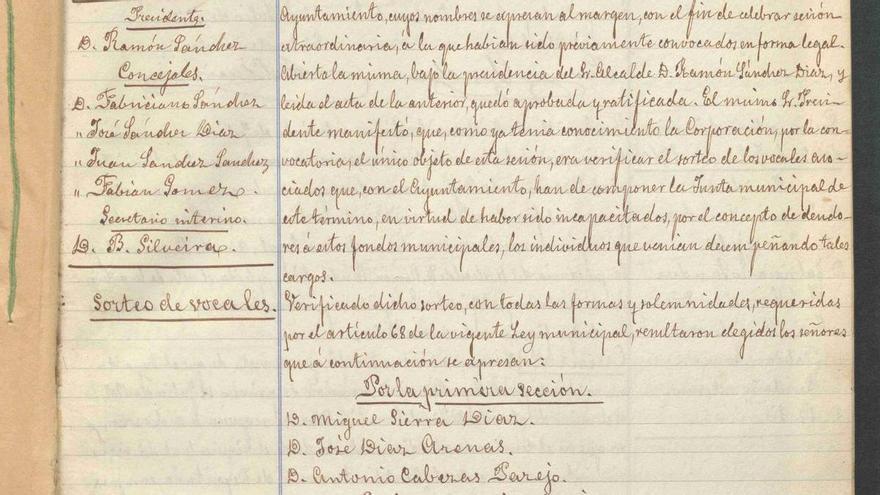 Presidente.
D. Ramón Sánchez
Concejales.
D. Fabriciano Sánchez
" José Sánchez Diaz
" Juan Sanchez Sanchez
" Fabián Gomez.
Secretario interino.
D. B. Silveira.
Sorteo de vocales.
Ayuntamiento, cuyos nombres se expresan al margen, con el fin de celebrar sesión
extraordinaria, á la que habian sido préviamente convocados en forma legal.
Abierta la misma, bajo la presidencia del Sr. Alcalde D. Ramón Sánchez Diaz, y
leida el acta de la anterior, quedó aprobada y ratificada. El mismo Sr. Presi-
dente manifestó, que, como ya tenia conocimiento la Corporación, por la con-
vocatoria, el único objeto de esta sesión, era verificar el sorteo de los vocales aso-
ciados que, con el Ayuntamiento, han de componer la Junta municipal de
este término, en virtud de haber sido incapacitados, por el concepto de deudo-
res á estos fondos municipales, los individuos que venian desempeñando tales
cargos.
Verificado dicho sorteo, con todas las formas y solemnidades, requeridas
por el artículo 68 de la vigente Ley municipal, resultaron elegidos los señores
que á continuación se expresan:
Por la primera sección.
D. Miguel Sierra Diaz.
D. José Diaz Arenas.
D. Antonio Cabezas Parejo.